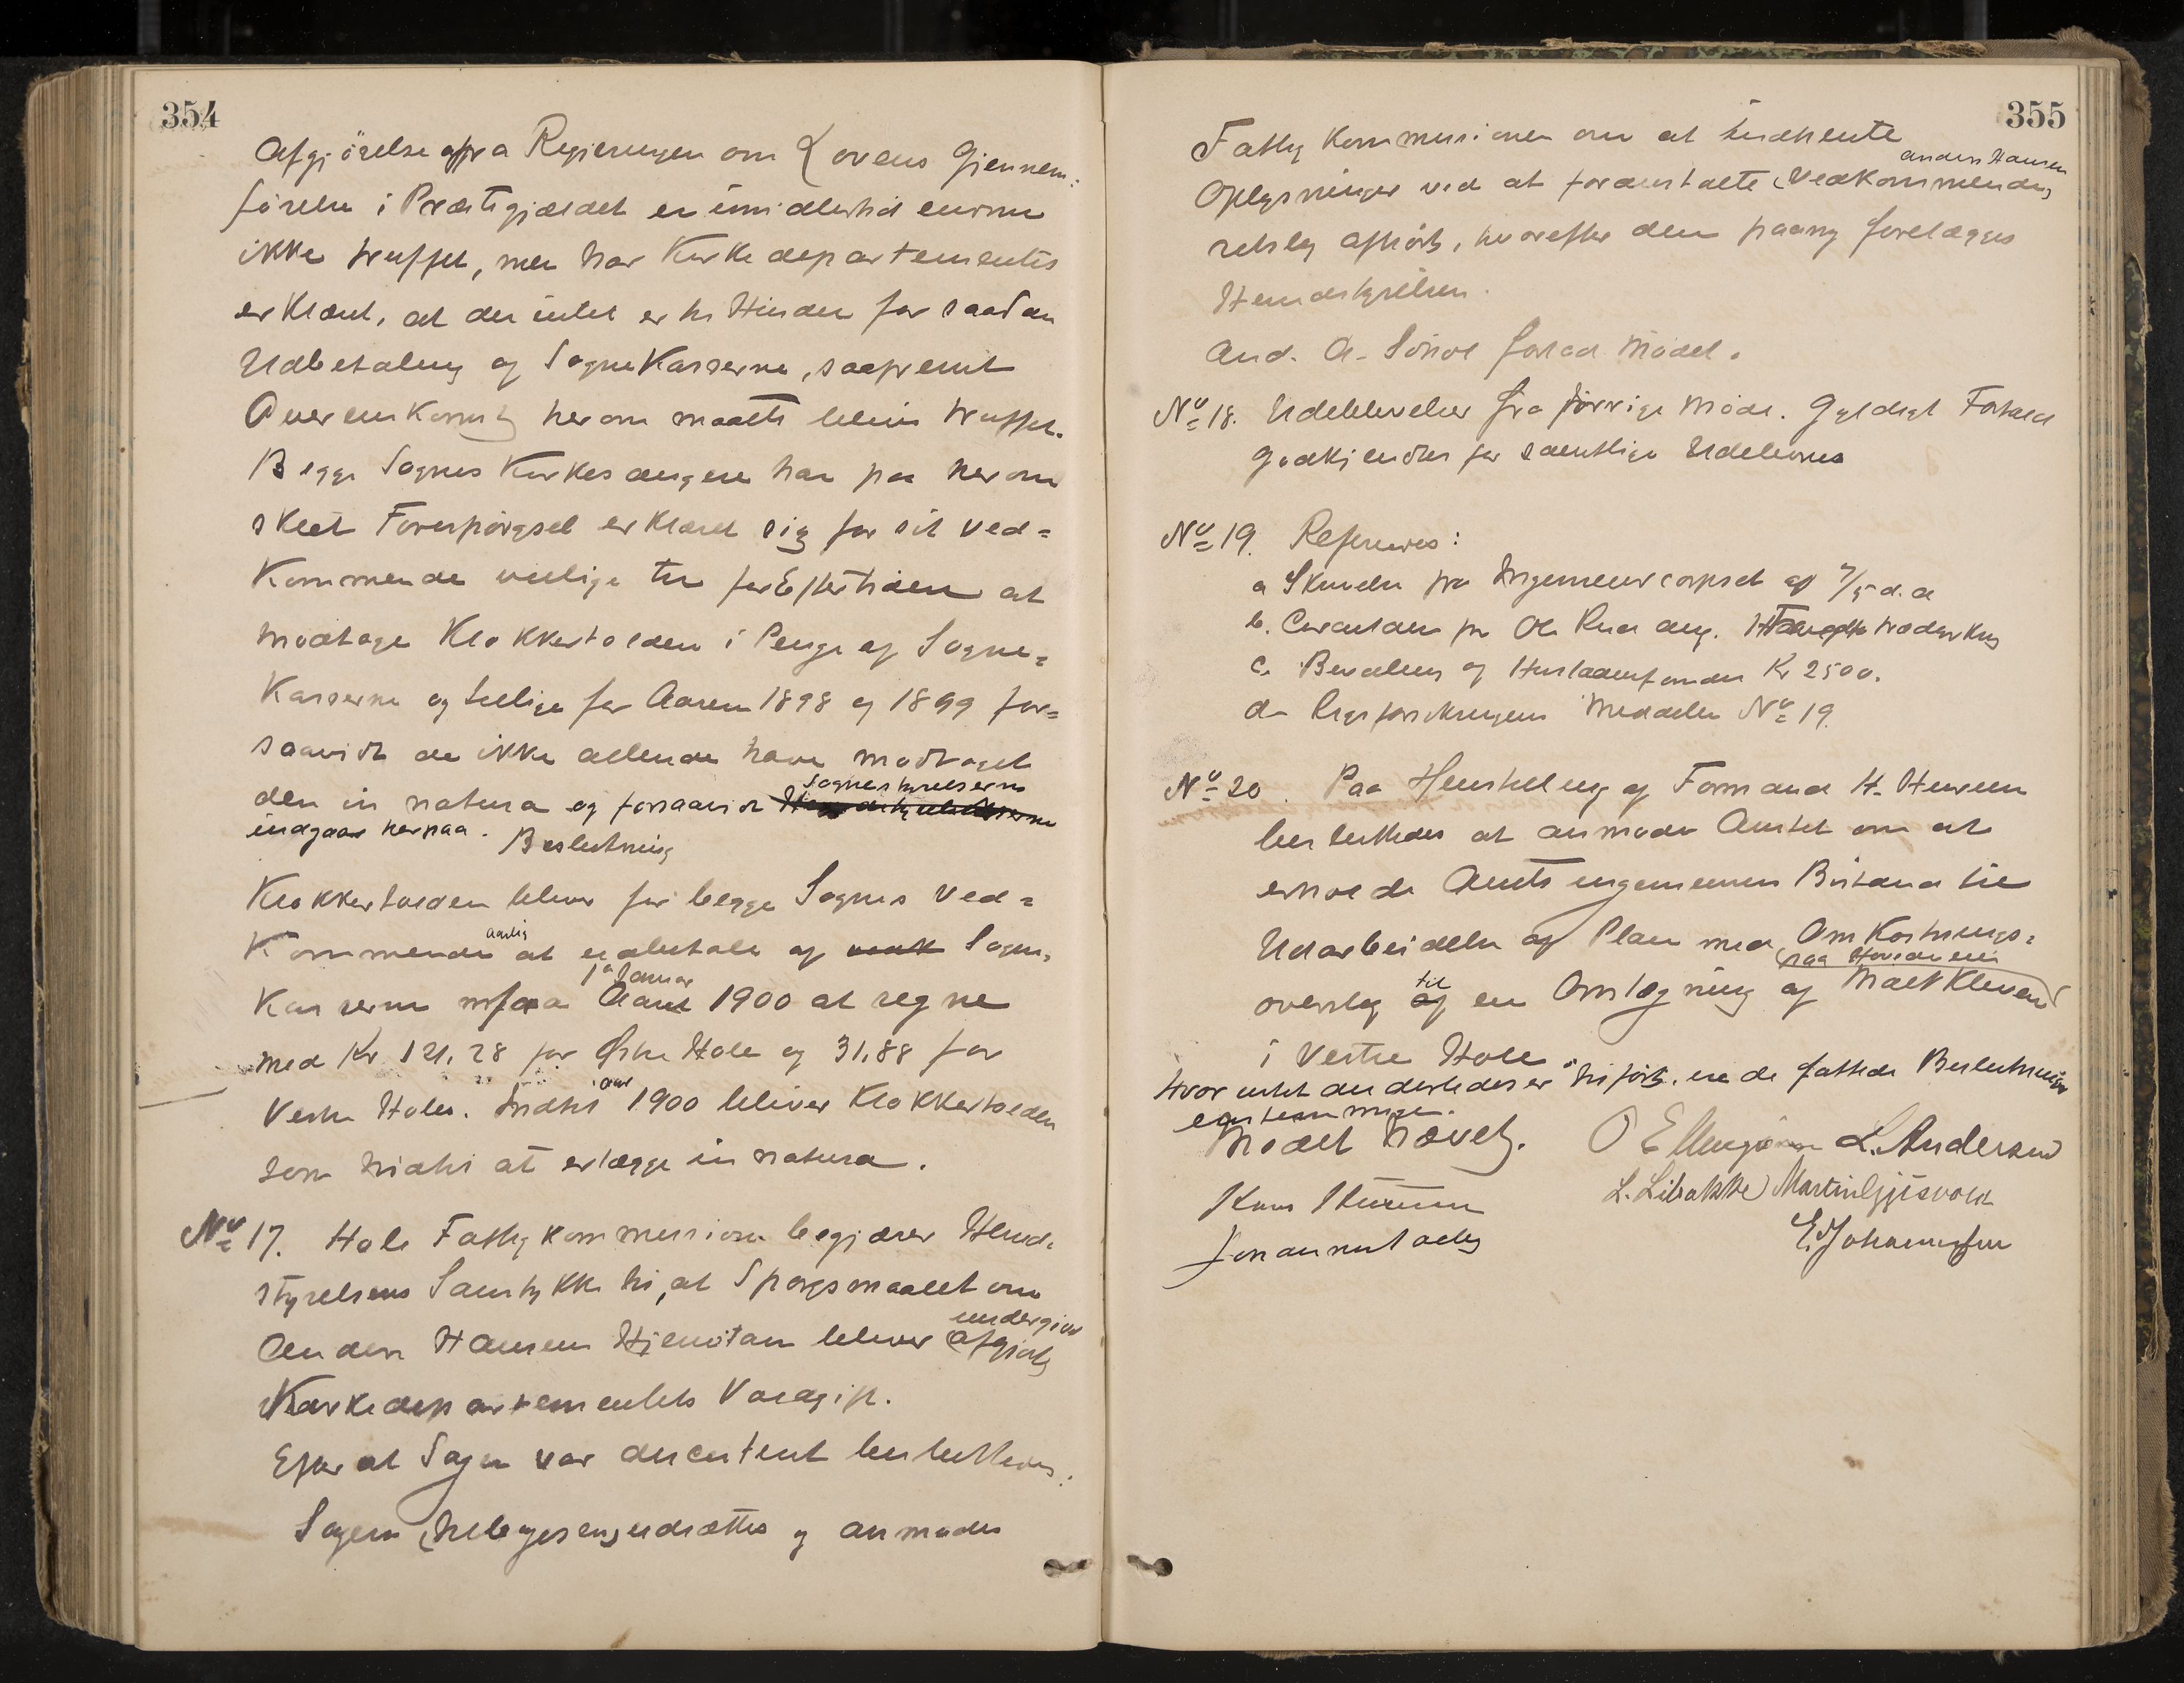 354
Afgjörelse fra Regjeringen om Lovens Gjennem:
förelse i Præstegjældet er imidlertid endnu
ikke truffet, men har Kirkedepartementet
erklæret, at der intet er til Hinder for saadan
Udbetaling af Sognekasserne, saafremt
Overenskomst herom maatte blive truffet.
Begge Sognes Kirkesangere har paa herom
skeet Forespörgsel erklæret sig for sit Ved=
kommende villige til for Eftertiden at
modtage Klokkertolden i Penge af Sogne=
kasserne og tillige for Aaren 1898 og 1899 for=
saavidt de ikke allerede have modtaget
den in natura og forsaavidt Sognestyrelserne
indgaar herpaa. Beslutning
Klokkertolden bliver for begge Sognes Ved=
kommende aarlig at udbetale af Sogne=
kasserne fra 1ste Januar 1900 at regne
med Kr 121,28 for Östre Hole og 31,88 for
Vestre Hole. Indtil aar 1900 bliver Klokkertolden
som hidtil at erlægge in natura.
No 17. Hole Fattigkommission begjærer Herred=
styrelsens Samtykke til, at Spörgsmaalet om
Anders Hansen bliver undergivet
Kirkedepartementets Afgjörelse.
Efter at Sagen var discuteret besluttedes:
Sagen udsættes og anmodes
355
Fattigkommissionen om at indhente
Oplysninger ved at foranstalte Vedkommende Anders Hansen
retslig afhört, hvorefter den paany forelægges
Herredstyrelsen.
And. A. forlod Mödet.
No 18. Udeblivelser fra forrige Möde. Gyldigt Forfald
godkjendtes for samtlige Udeblevne
No 19. Refereredes:
a Skrivelse fra Ingenieurcorpset af 7/5 d.a
b. Circulære fra Ole Rud ang.
c. Bevilling af Kr 2500.
d. Rigsforsikringens Meddelelse No 19.
No 20. Paa Henstilling af Formand H.
besluttedes at anmode Amtet om at
erholde Amtsingeniörens Bistand til
Udarbeidelse af Plan med Omkostnings=
overslag til en Omlægning af paa Hovedveien
i Vestre Hole
Hvor intet anderledes er tilfört, ere de fattede Beslutninger
enstemmige.
Mödet hævet.
L. Andersen
L. Libakke Martin Gjesvold
E. Johannesen